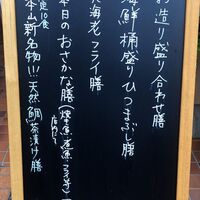 お造り盛り合わせ膳
海鮮桶盛りひつまぶし膳
大海老フライ膳
本日のおさかな膳(煮魚
定10食
本山新名物!!!天然鯛茶漬け膳